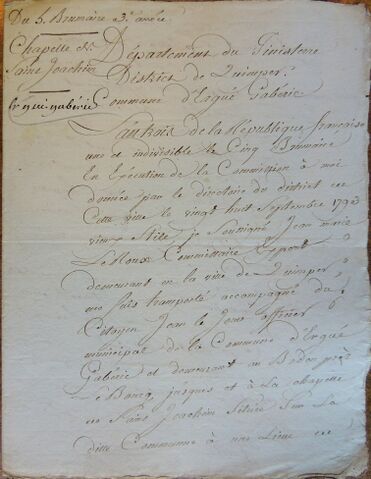 Du 5. Brumaire 3e année
Chapelle de
Saint Joachim
Ergué gabéric
Département du finistere
District de Quimper.
Commune d'Ergué Gabéric
L'an trois de la République française
une et indivisible le Cinq Brumaire
En Exécution de la Commission à moi
donnée par le directoire du district de
Cette ville le vingt huit Septembre 179
vieux Stile, je Soussigné Jean marie
LeRoux Commissaire Expert
demeurant en la ville de Quimper
me suis transporté accompagné du
Citoyen Jean le Jour officier
municipal de la Commune d'Ergué
Gabéric et demeurant au Bodenn
Bourg, jusques et à La chapelle
de Saint Joachim Située Sur La
ditte Commune à une Lieue de